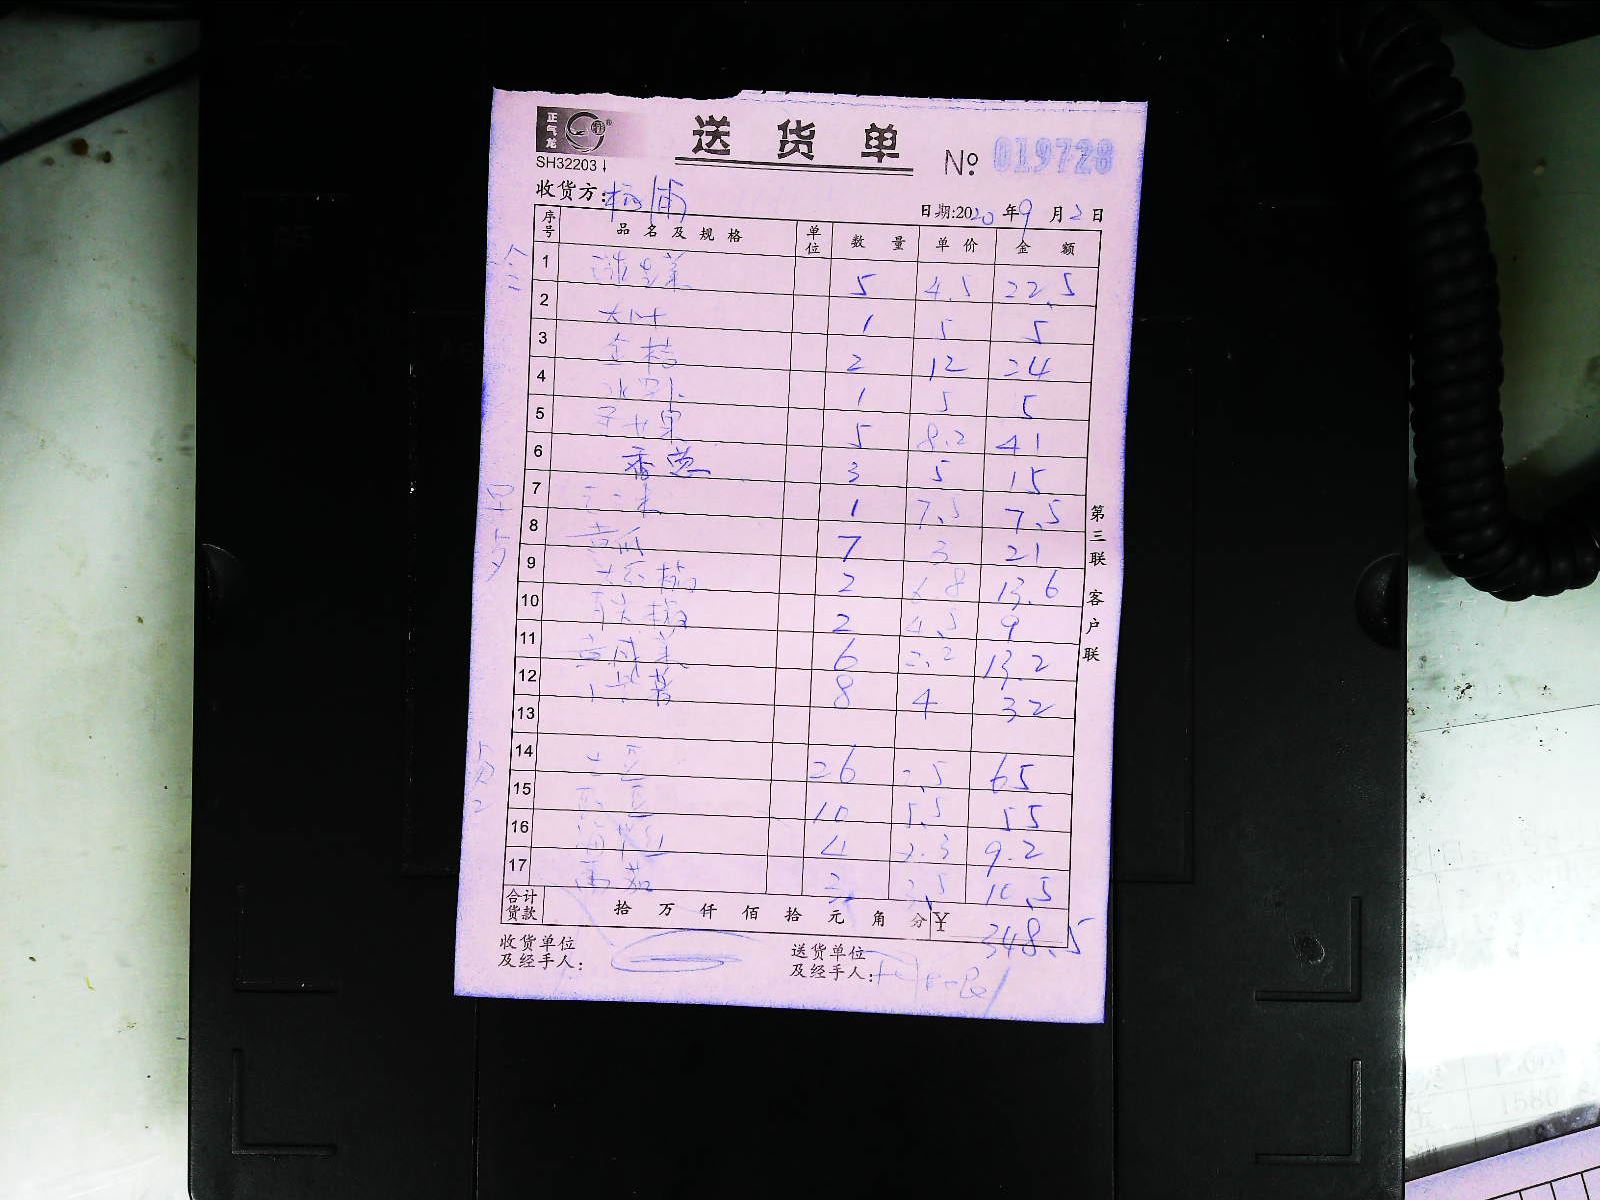 正气龙
送货单
SH32203↓
№ 019728
收货方: 杨浦
日期:2020年9月2日
序号 品名及规格 单位 数量 单价 金额
1 球生菜 5 4.5 22.5
2 大叶 1 5 5
3 金桔 2 12 24
4 1 5 5
5 5 8.2 41
6 香葱 3 5 15
7 玉米 1 7.5 7.5
8 黄瓜 7 3 21
9 椒 2 6.8 13.6
10 青尖椒 2 4.5 9
11 6 2.2 13.2
12 8 4 32
13
14 土豆 26 2.5 65
15 豆 10 5.5 55
16 海带丝 4 2.3 9.2
17 番茄 3 3.5 10.5
合计货款 拾万仟佰拾元角分 ¥ 348.5
收货单位及经手人:
送货单位及经手人:
第三联 客户联
1580